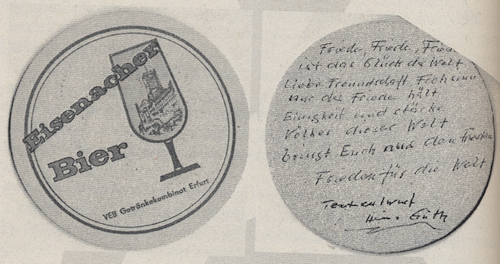 Eisenacher
Bier
VEB Getränkekombinat Erfurt
Friede, Friede, Friede
ist das Glück der Welt
Liebe Freundschaft Frohsinn
nur der Friede hält
Einigkeit und stärke
Völker dieser Welt
bringt Euch nur den
Frieden für die Welt
Textentwurf